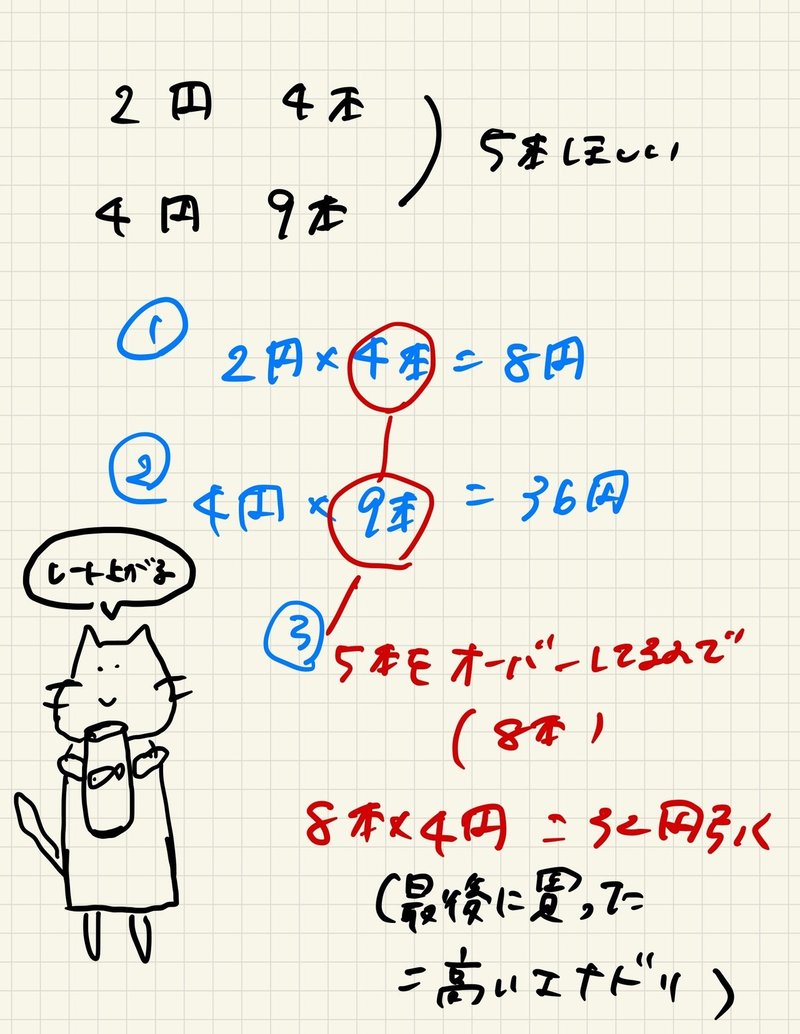 2円 4本
4円 9本
5本ほしい
① 2円×4本=8円
② 4円×9本=36円
レート上がる
③ 5本をオーバーしてるので
(8本)
8本×4円=32円引く
(最後に買った
=高いエナドリ)